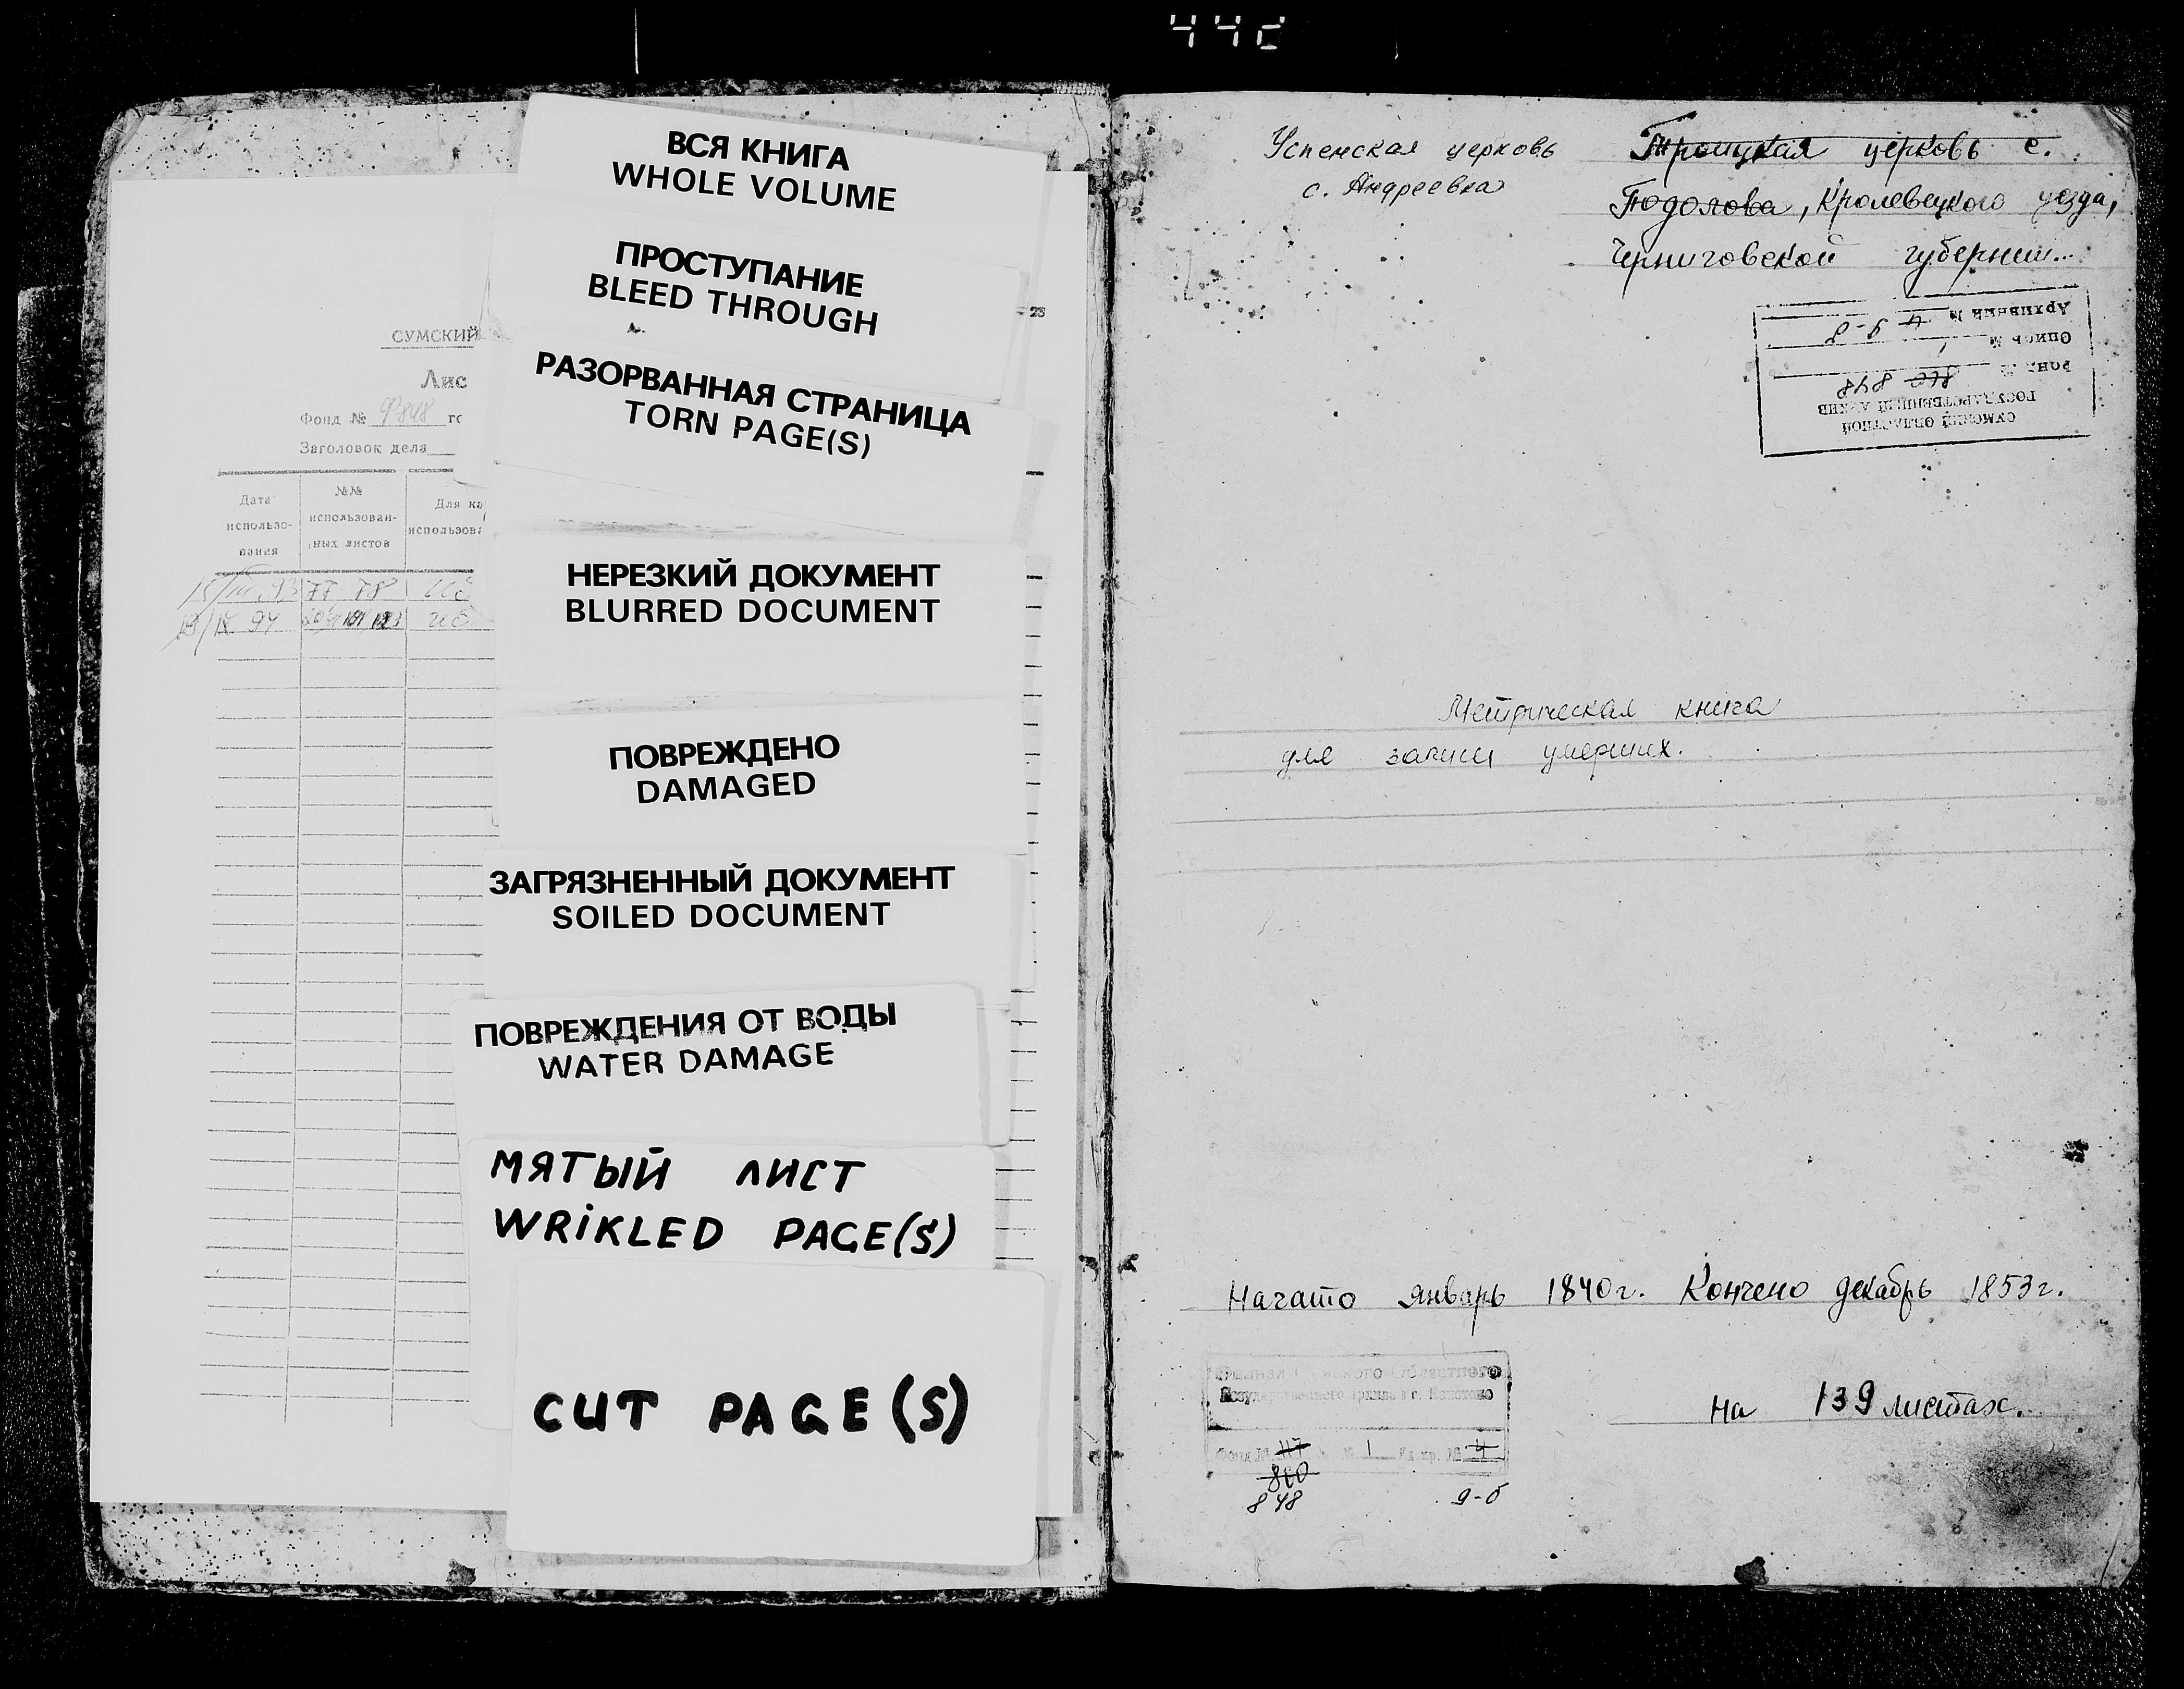 ВСЯ КНИГА
WHOLE VOLUME
ПРОСТУПАНИЕ
BLEED THROUGH
РАЗОРВАННАЯ СТРАНИЦА
TORN PAGE(S)
НЕРЕЗКИЙ ДОКУМЕНТ
BLURRED DOCUMENT
ПОВРЕЖДЕНО
DAMAGED
ЗАГРЯЗНЕННЫЙ ДОКУМЕНТ
SOILED DOCUMENT
ПОВРЕЖДЕНИЯ ОТ ВОДЫ
WATER DAMAGE
МЯТЫЙ ЛИСТ
WRIKLED PAGE(S)
CUT PAGE(S)
СУМСКИЙ
Лис
Фонд №
Заголовок дела
Дата использо-вания
№№ использован-ных листов
Для ка
использова
77 78
94
Успенская церковь
с. Андреевка
Троицкая церковь с.
Подолова, Кролевецкого уезда,
Черниговской губернии..
Архивный № 4 9-б
Опись № 1
Фонд № 860 848
СУМСКИЙ ОБЛАСТНОЙ
ГОСУДАРСТВЕННЫЙ АРХИВ
Метрическая книга
для записи умерших.
Начато январь 1840г. Кончено декабрь 1853г.
Филиал Сумского Областного
Государственного Архива в г.
Фонд № 117 1 № 4
860
848 9-б
На 139 листах.